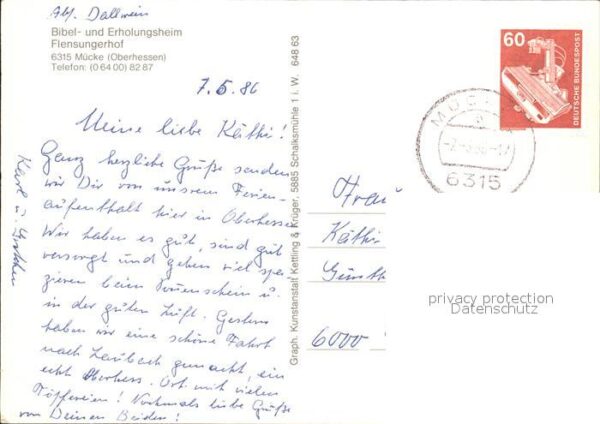 Abs. Dallwein
Bibel- und Erholungsheim
Flensungerhof
6315 Mücke (Oberhessen)
Telefon: (0 64 00) 82 87
7.5.86
Meine liebe Käthi!
Ganz herzliche Grüße senden
wir Dir von unsrem Ferien-
aufenthalt hier in Oberhessen
Wir haben es gut, sind gut
versorgt und gehen viel spa-
zieren beim Sonnenschein u.
in der guten Luft. Gestern
haben wir eine schöne Fahrt
nach Laubach gemacht, ein
echt Oberhess. Ort mit vielen
Töpfereien! Nochmals liebe Grüße
von Deinen Beiden!
Karl u. Gretchen
Graph. Kunstanstalt Kettling & Krüger, 5885 Schalksmühle 1 i. W. 648 63
60
DEUTSCHE BUNDESPOST
6315
Frau
Käthi
Günth
6000
privacy protection
Datenschutz